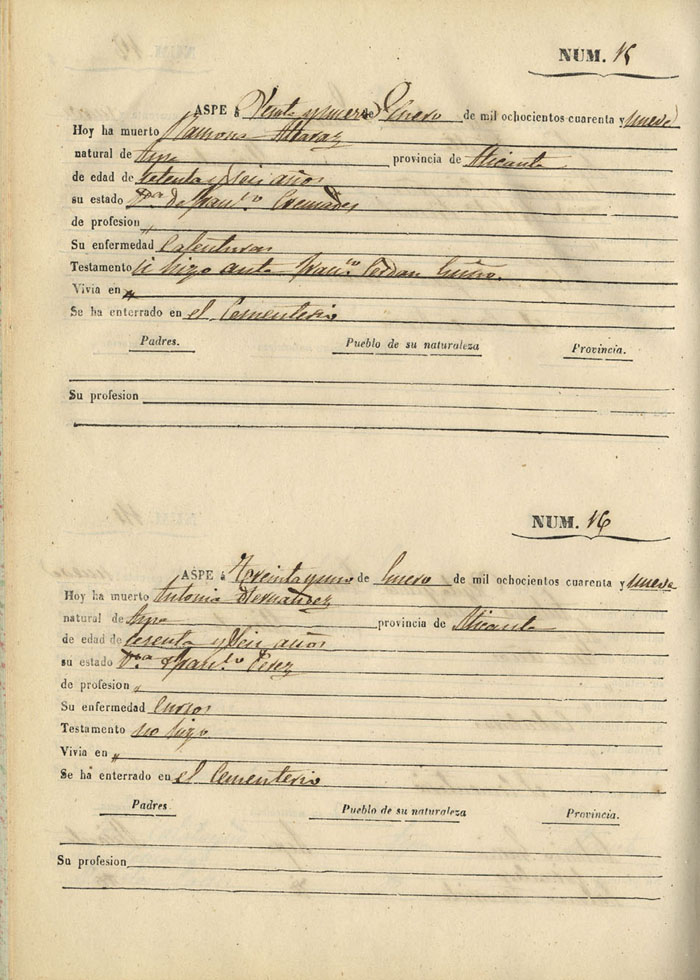 NUM. 15
ASPE á Veinte y nueve de Enero de mil ochocientos cuarenta y nueve
Hoy ha muerto Ramona Alcaraz
natural de Aspe provincia de Alicante
de edad de setenta y seis años
su estado V.da de Fran.co Cremades
de profesion "
Su enfermedad Calenturas
Testamento si hizo ante Fran.co Cerdan
Vivia en "
Se ha enterrado en el Cementerio
Padres. Pueblo de su naturaleza Provincia.
Su profesion
NUM. 16
ASPE á Treinta y uno de Enero de mil ochocientos cuarenta y nueve
Hoy ha muerto Antonia Hernandez
natural de Aspe provincia de Alicante
de edad de sesenta y seis años
su estado V.da de Fran.co Perez
de profesion "
Su enfermedad Cursos
Testamento no hizo
Vivia en "
Se ha enterrado en el Cementerio
Padres. Pueblo de su naturaleza Provincia.
Su profesion